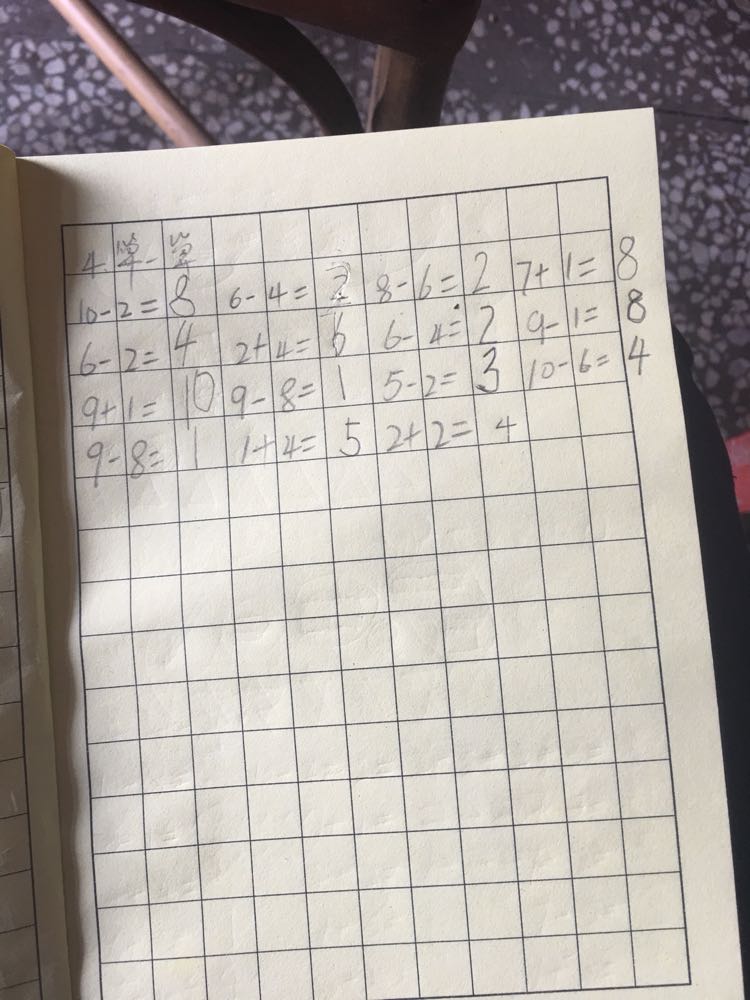 4. 算一算
10-2=8 6-4=2 8-6=2 7+1=8
6-2=4 2+4=6 6-4=2 9-1=8
9+1=10 9-8=1 5-2=3 10-6=4
9-8=1 1+4=5 2+2=4